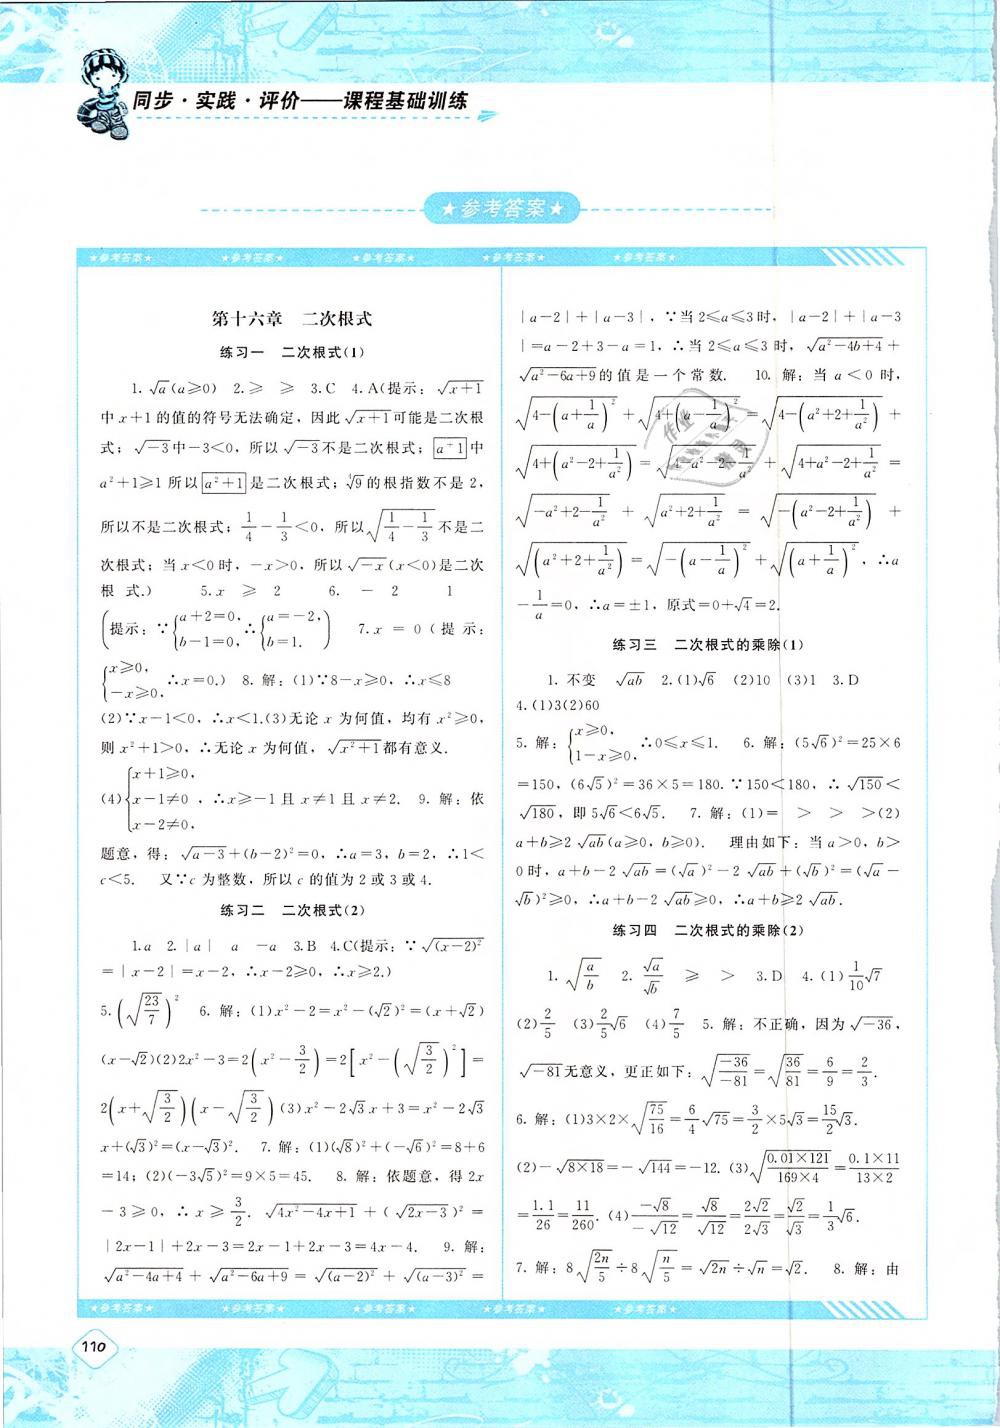 同步·实践·评价——课程基础训练
★参考答案★
★参考答案★ ★参考答案★ ★参考答案★ ★参考答案★ ★参考答案★
第十六章 二次根式
练习一 二次根式(1)
1. √a(a≥0) 2.≥ ≥ 3.C 4.A(提示: √(x+1)
中 x+1 的值的符号无法确定, 因此 √(x+1) 可能是二次根
式; √-3 中-3<0, 所以 √-3 不是二次根式; a⁺1 中
a²+1≥1 所以 a²+1 是二次根式; ∛9 的根指数不是 2,
所以不是二次根式; 1/4-1/3<0, 所以 √(1/4-1/3) 不是二
次根式; 当 x<0 时, -x>0, 所以 √-x (x<0)是二次
根 式.) 5. x ≥ 2 6. -2 1
(提示: ∵{a+2=0, b-1=0, ∴{a=-2, b=1.) 7. x = 0 (提 示:
{x≥0, -x≥0, ∴x=0.) 8. 解: (1)∵8-x≥0, ∴x≤8
(2)∵x-1<0, ∴x<1.(3)无论 x 为何值, 均有 x²≥0,
则 x²+1>0, ∴无论 x 为何值, √(x²+1) 都有意义.
(4){x+1≥0, x-1≠0, x-2≠0, ∴x≥-1 且 x≠1 且 x≠2. 9. 解: 依
题意, 得: √(a-3)+(b-2)²=0, ∴a=3, b=2, ∴1<
c<5. 又∵c 为整数, 所以 c 的值为 2 或 3 或 4.
练习二 二次根式(2)
1.a 2.|a| a -a 3.B 4.C(提示: ∵ √(x-2)²
=|x-2|=x-2, ∴x-2≥0, ∴x≥2.)
5.(√(23/7))² 6. 解: (1)x²-2=x²-(√2)²=(x+√2)
(x-√2)(2)2x²-3=2(x²-3/2)=2[x²-(√(3/2))²]=
2(x+√(3/2))(x-√(3/2))(3)x²-2√3x+3=x²-2√3
x+(√3)²=(x-√3)². 7. 解: (1)(√8)²+(-√6)²=8+6
=14; (2)(-3√5)²=9×5=45. 8. 解: 依题意, 得 2x
-3≥0, ∴x≥3/2. √(4x²-4x+1)+(√(2x-3))²=
|2x-1|+2x-3=2x-1+2x-3=4x-4. 9. 解:
√(a²-4a+4)+√(a²-6a+9)=√(a-2)²+√(a-3)²=
|a-2|+|a-3|, ∵当 2≤a≤3 时, |a-2|+|a-3
|=a-2+3-a=1, ∴当 2≤a≤3 时, √(a²-4b+4)+
√(a²-6a+9) 的值是一个常数. 10. 解: 当 a<0 时,
√(4-(a+1/a)²)+√(4+(a-1/a)²)=√(4-(a²+2+1/a²))+
√(4+(a²-2+1/a²))=√(4-a²-2-1/a²)+√(4+a²-2+1/a²)=
√(-a²+2-1/a²)+√(a²+2+1/a²)=√(-(a²-2+1/a²))+
√(a²+2+1/a²)=√(-(a-1/a)²)+√((a+1/a)²), ∴a
-1/a=0, ∴a=±1, 原式=0+√4=2.
练习三 二次根式的乘除(1)
1. 不变 √ab 2.(1)√6 (2)10 (3)1 3.D
4.(1)3(2)60
5. 解: {x≥0, 1-x≥0, ∴0≤x≤1. 6. 解: (5√6)²=25×6
=150, (6√5)²=36×5=180. ∵150<180, ∴√150<
√180, 即 5√6<6√5. 7. 解: (1)= > > >(2)
a+b≥2√ab(a≥0, b≥0). 理由如下: 当 a>0, b>
0 时, a+b-2√ab=(√a)²-2√ab+(√b)²=(√a-
√b)²≥0, ∴a+b-2√ab≥0, ∴a+b≥2√ab.
练习四 二次根式的乘除(2)
1. √(a/b) 2. √a/√b ≥ > 3.D 4.(1)1/10√7
(2)2/5 (3)2/5√6 (4)7/5 5. 解: 不正确, 因为 √-36,
√-81 无意义, 更正如下: √(-36/-81)=√(36/81)=6/9=2/3.
6. 解: (1)3×2×√(75/16)=6/4√75=3/2×5√3=15/2√3.
(2)-√(8×18)=-√144=-12. (3)√(0.01×121/169×4)=0.1×11/13×2
=1.1/26=11/260. (4)-√8/-√12=√8/√12=2√2/2√3=√2/√3=1/3√6.
7. 解: 8√(2n/5)÷8√(n/5)=√2n÷√n=√2. 8. 解: 由
★参考答案★ ★参考答案★ ★参考答案★ ★参考答案★ ★参考答案★
110